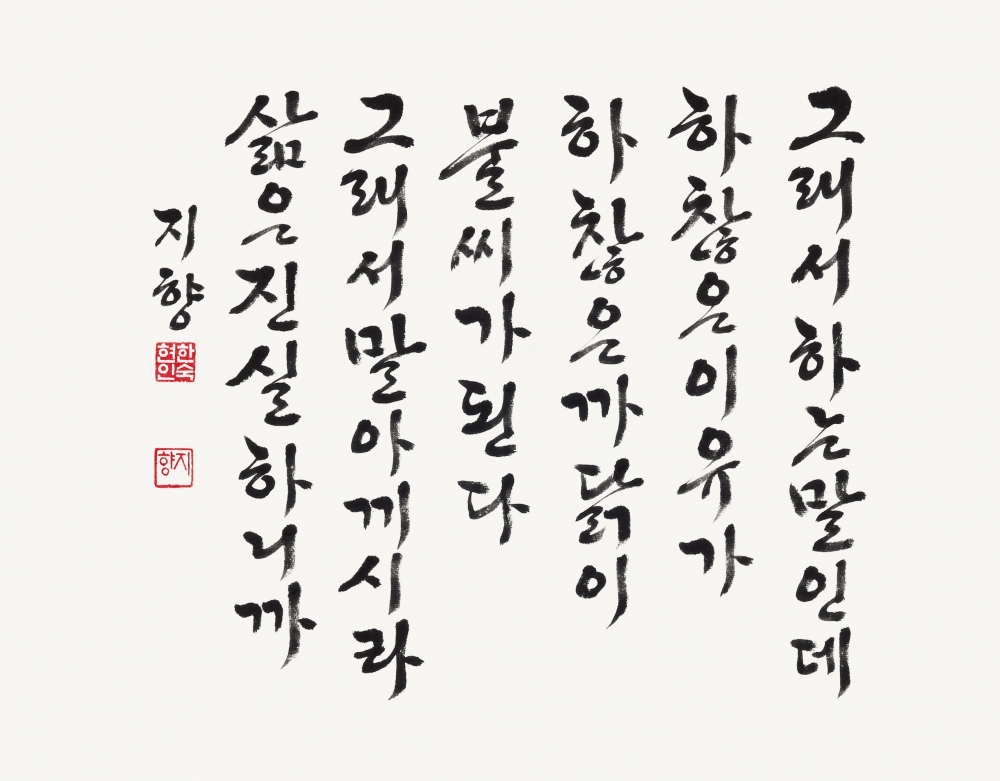 그래서하는말인데
하찮은이유가
하찮은까닭이
불씨가된다
그래서말아끼시라
삶은진실하니까
지향
한숙
현인
지향